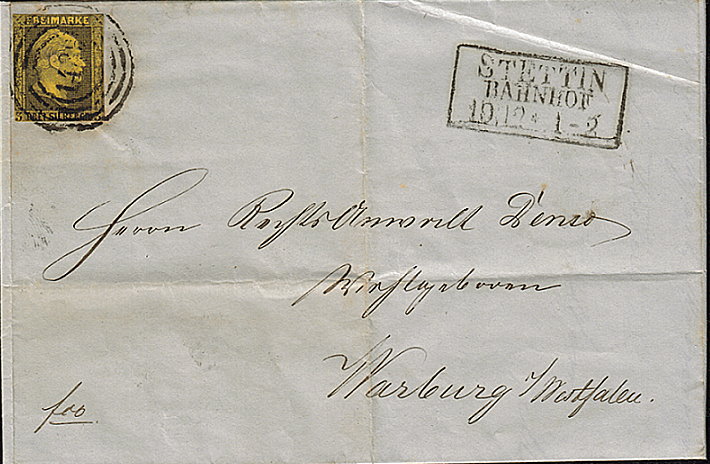 FREIMARKE
3 SILBERGR.
STETTIN
BAHNHOF
19.12 * 1-2
Herrn Rechts Anwalt Denso
Wohlgeboren
Warburg i/Westfalen.
fco